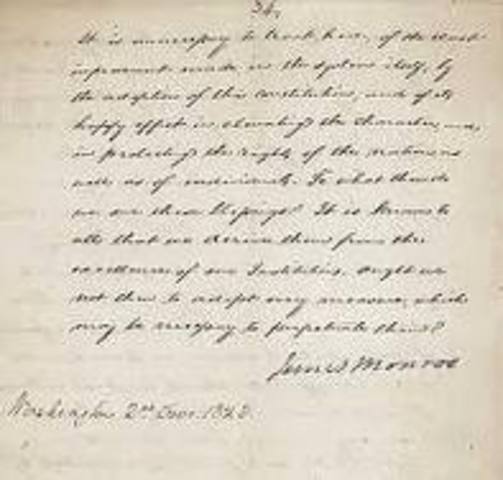 36,
It is unnecessary to treat, here, of the vast
improvement made in the system itself, by
the adoption of this constitution, and of its
happy effect in elevating the character, and
in protecting the rights of the nation as
well as of individuals. To what then do
we owe these blessings? It is known to
all that we derive them from the
excellence of our Institutions. Ought we
not then to adopt every measure, which
may be necessary to perpetuate them?
James Monroe
Washington 2nd 1823